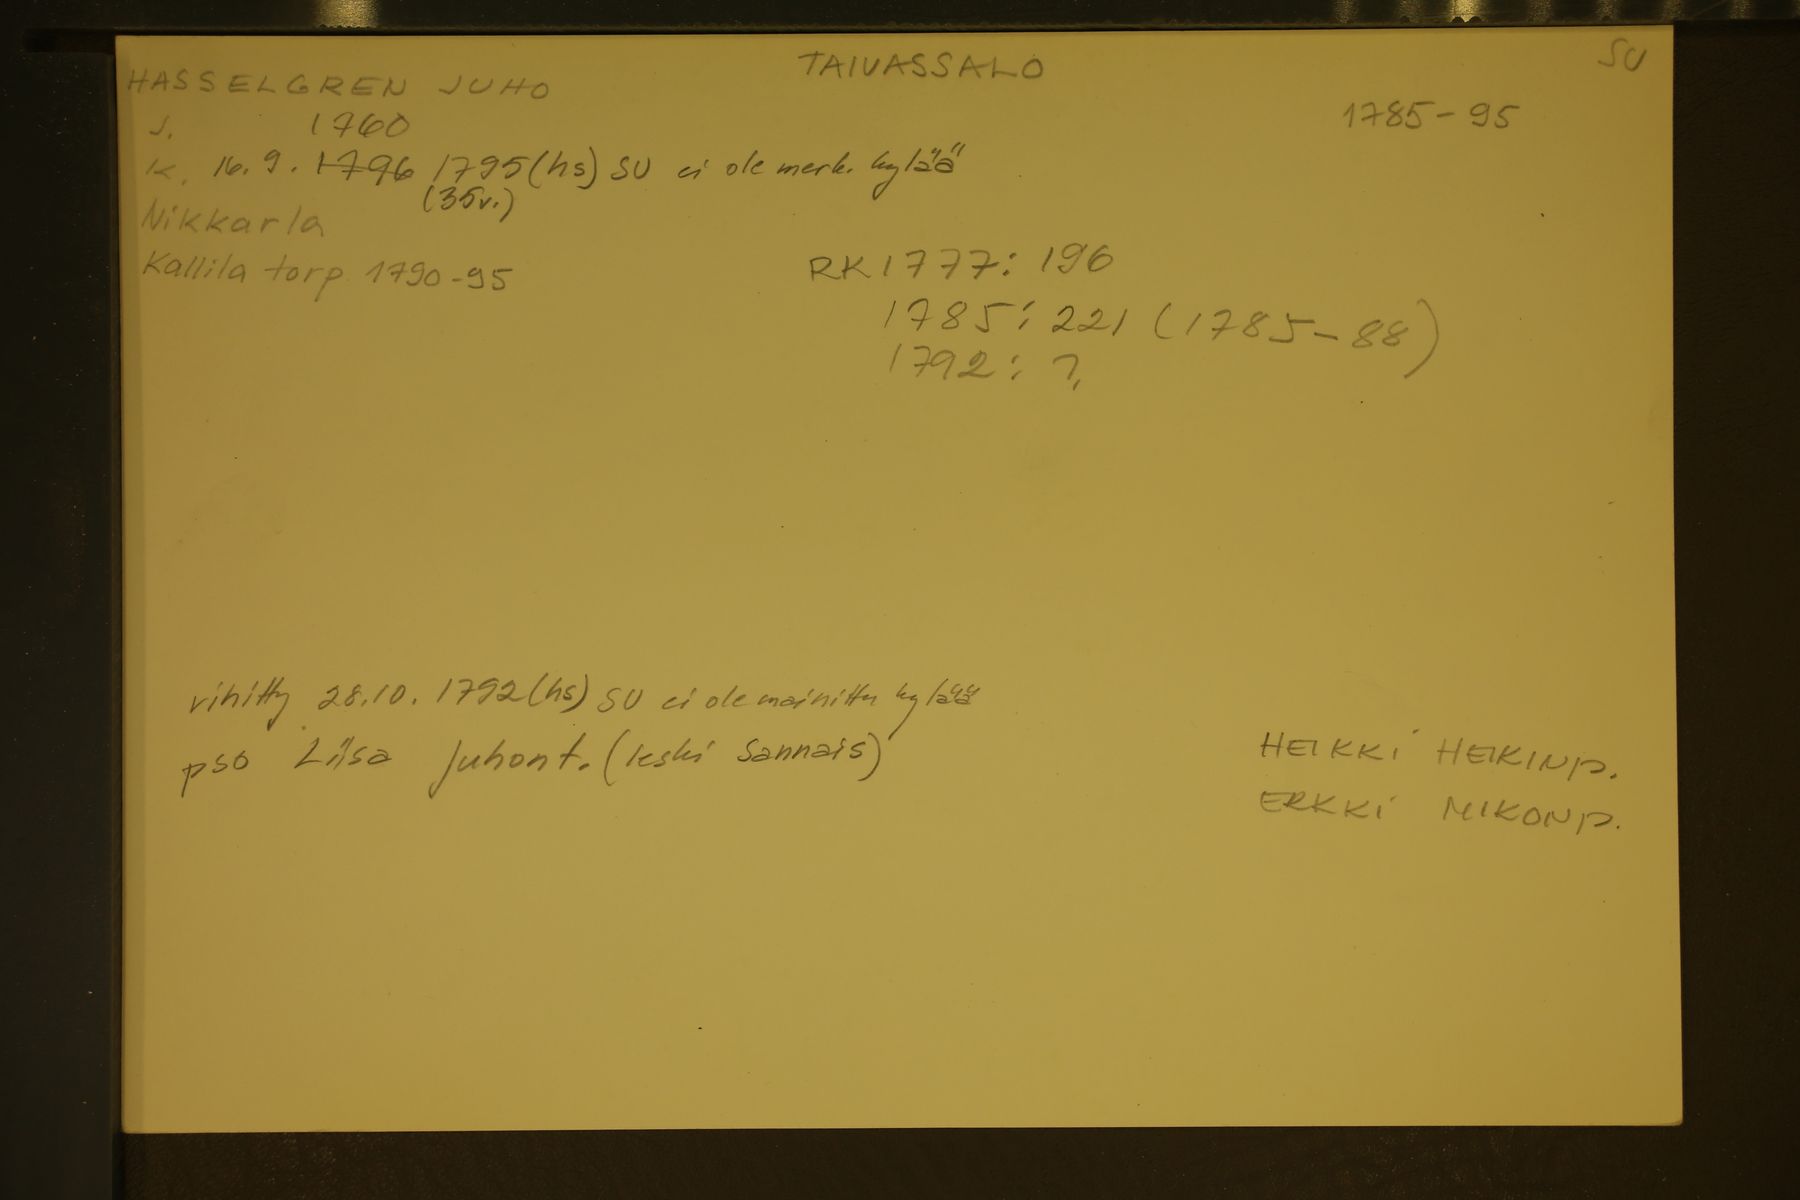 TAIVASSALO
SU
HASSELGREN JUHO
1785-95
J. 1760
K. 16.9. 1796 1795 (hs) SU ei ole merk. kylää
(35v.)
Nikkarla
Kallila torp. 1790-95
RK 1777: 196
1785: 221 (1785-88)
1792: ?
vihitty 28.10. 1792 (hs) SU ei ole mainittu kylää
pso Liisa Juhont. (leski Sannais)
HEIKKI HEIKINP.
ERKKI MIKONP.